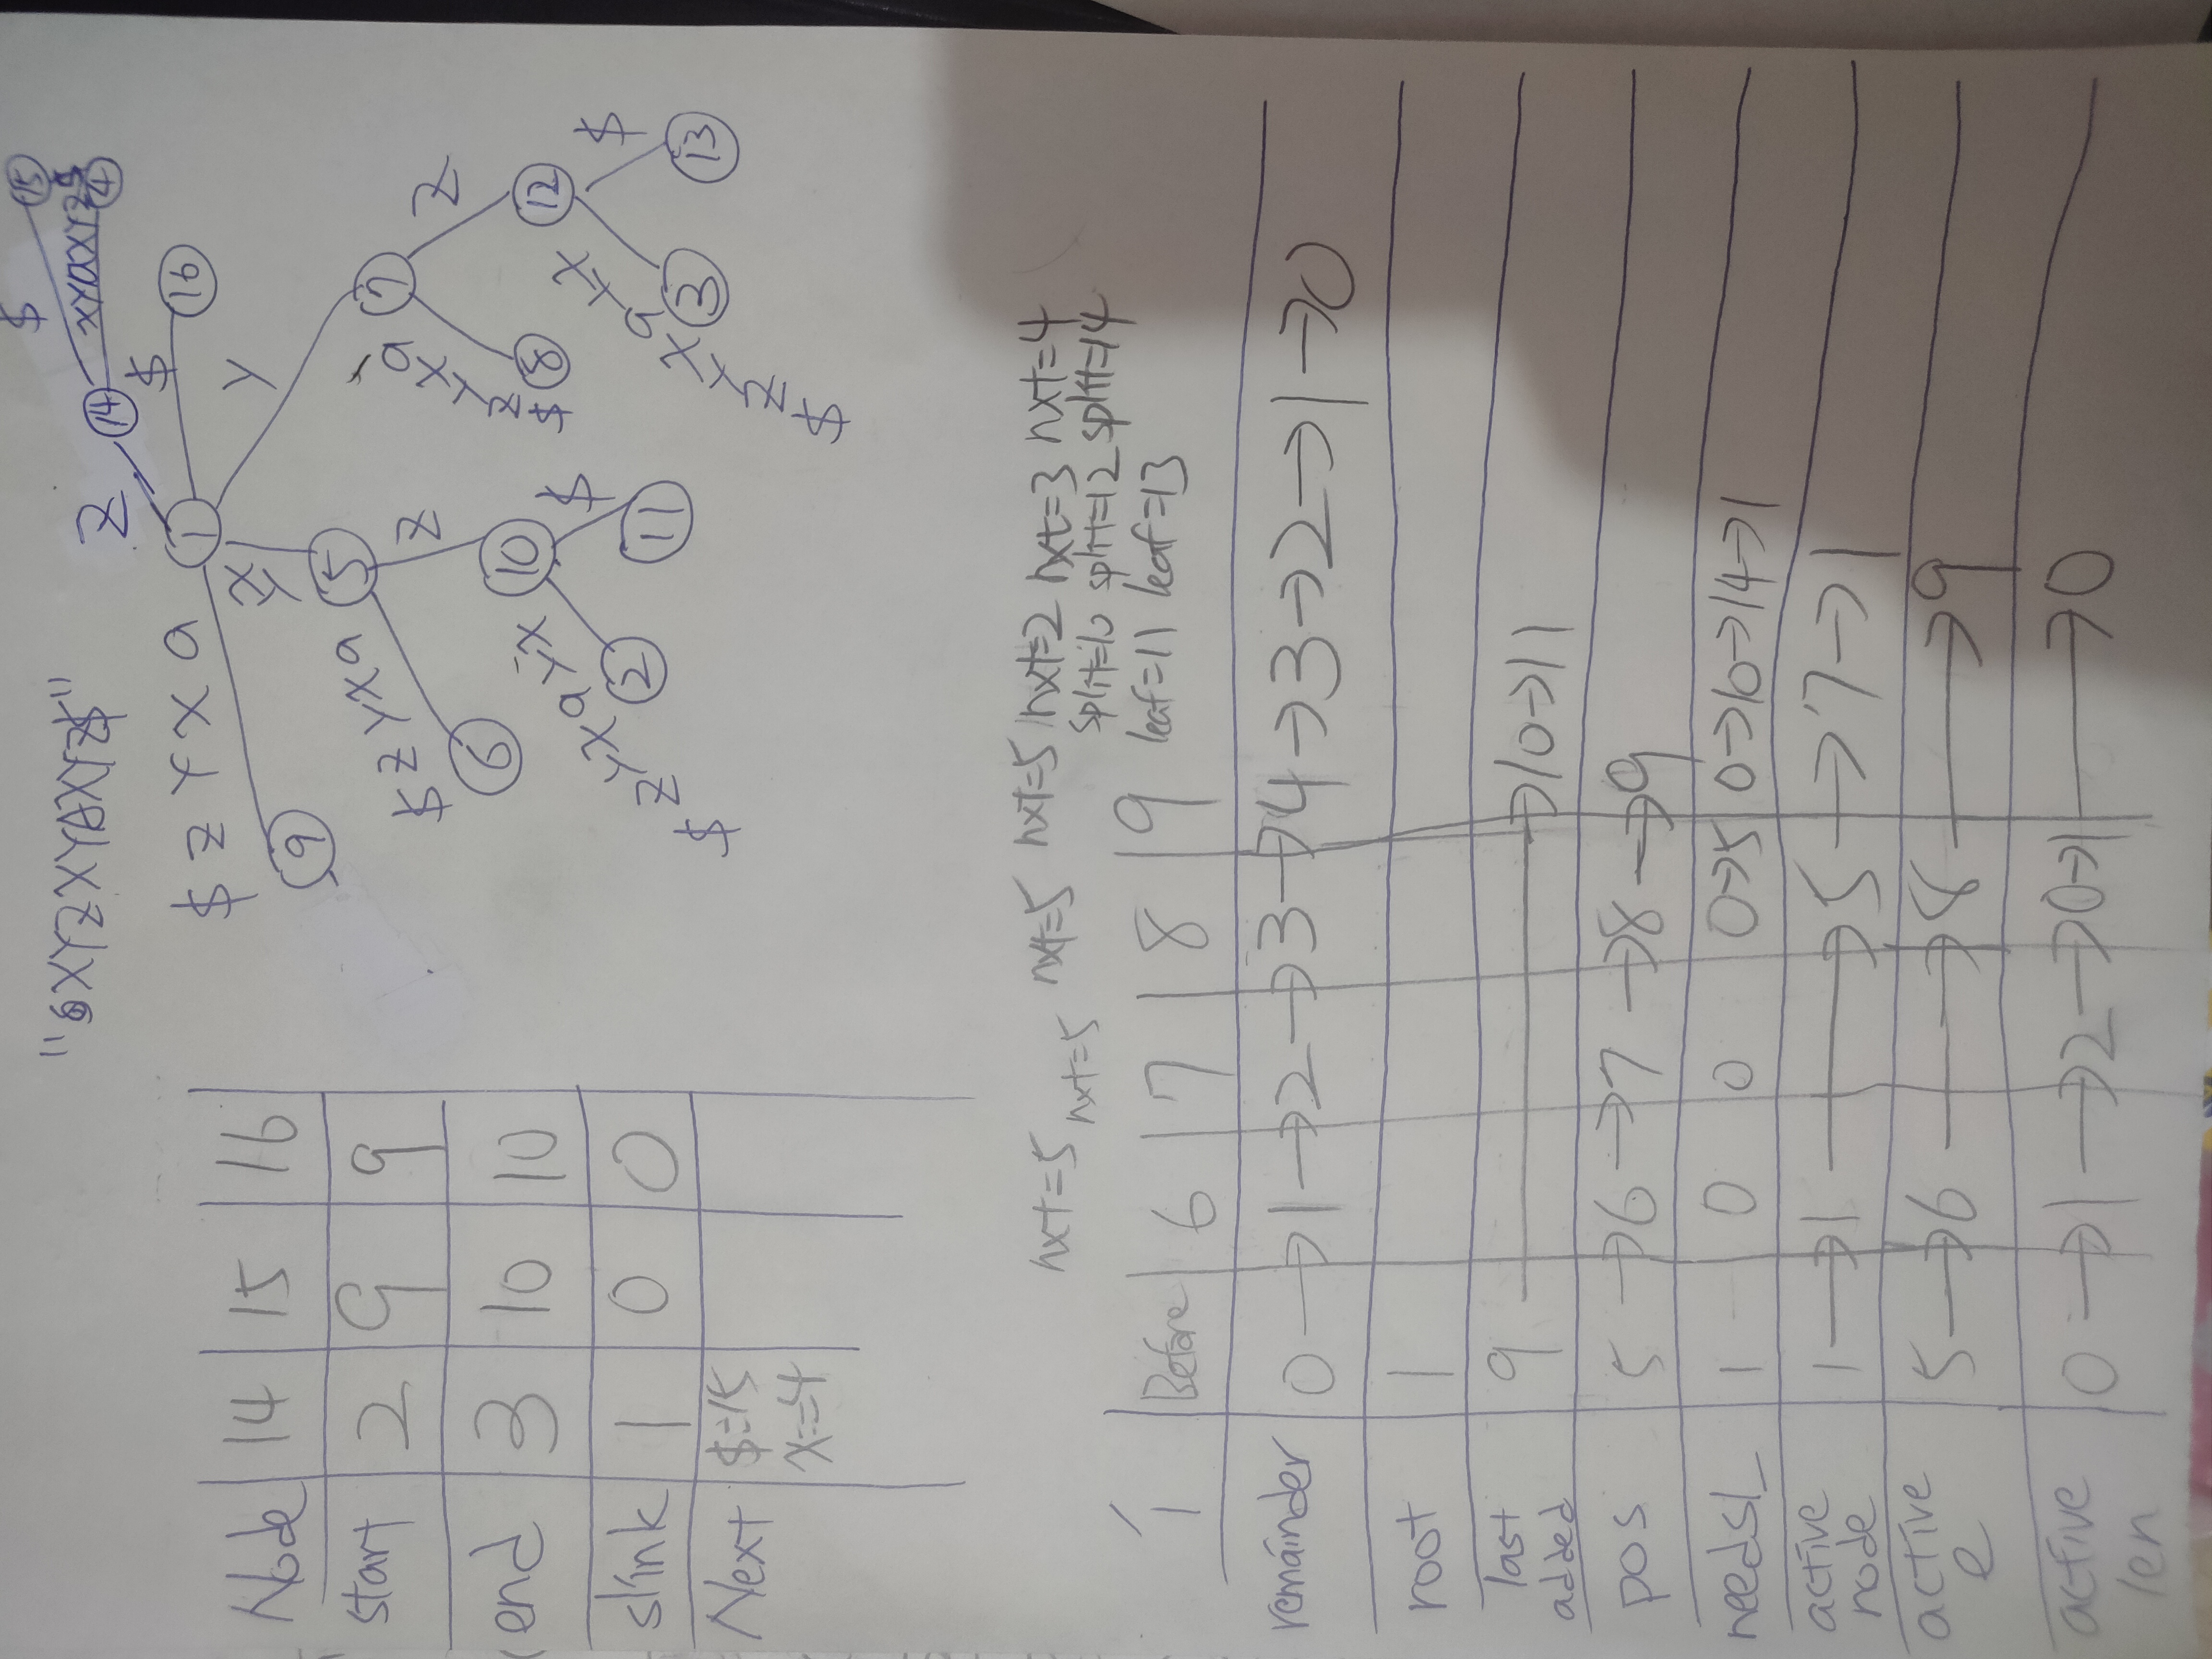 "XYZXYAXYZ$"
Node 14 15 16
start 2 9 9
end 3 10 10
slink 1 0 0
Next $=15
x=4
$ 15
Z 14 XYaXYZ$ 4
$ Z Y X a 1 $ 16
9 X Y Y
5 7
$ Z Y X a Z a X Y Z $ Z
6 10 8 12
$ Z Y X a Y X $ $ Z Y X a Y X $
2 11 3 13
nxt=5 nxt=5 nxt=5 nxt=5 nxt=2 nxt=3 nxt=4
split=10 split=12 split=14
leaf=11 leaf=13
i Before 6 7 8 9
remainder 0 → 1 → 2 → 3 → 4 → 3 → 2 → 1 → 0
root 1
last added 9 → 10 → 11
pos 5 → 6 → 7 → 8 → 9
needsl_ 1 0 0 0→5 0→10→14→1
active node 1 → 1 → 5 → 7 → 1
active e 5 → 6 → 8 → 9
active len 0 → 1 → 2 → 0→1 → 0